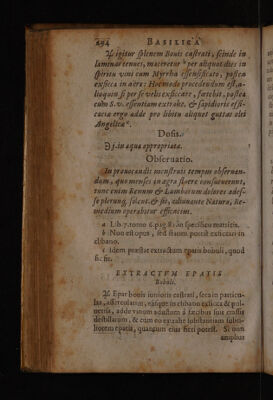 294 BASILICA
℞ igitur splenem Bovis castrati, scinde in
laminas tenues, maceretur b per aliquot dies in
spiritu vini cum Myrrha essensificato, postea
exsicca in aere: Hoc modo procedendum est, a-
lioquin si per se velis exsiccare, fœtebit, postea
cum S.v. essentiam extrahe. & sapidioris effi-
caciæ ergo adde pro libitu aliquot guttas olei
Angelicæ c.
Dosis.
℈j. in aqua appropriata.
Observatio.
In provocandis menstruis tempus observan-
dum, quo menses in ægra fluere consueverunt,
tunc enim Renum & Lumborum dolores ades-
se plerunq; solent, & sic, adiuvante Natura, Re-
medium operabitur efficacius.
a Lib 7. tomo 6. pag 81. in specificu matricis.
b Non est opus, sed statim potest exsiccari in
clibano.
c Idem præstat extractum epatis bobuli, quod
sic fit.
EXTRACTUM EPATIS
Bobuli.
℞ Epar bovis iunioris castrati, seca in particu-
las, easque in clibano exsicca & pul-
verisa, adde vinum adustum à fæcibus sui crassis
destillatum, & cum eo extrahe substantiam subti-
liorem epatis, quantum eius fieri potest. Si non
amplius